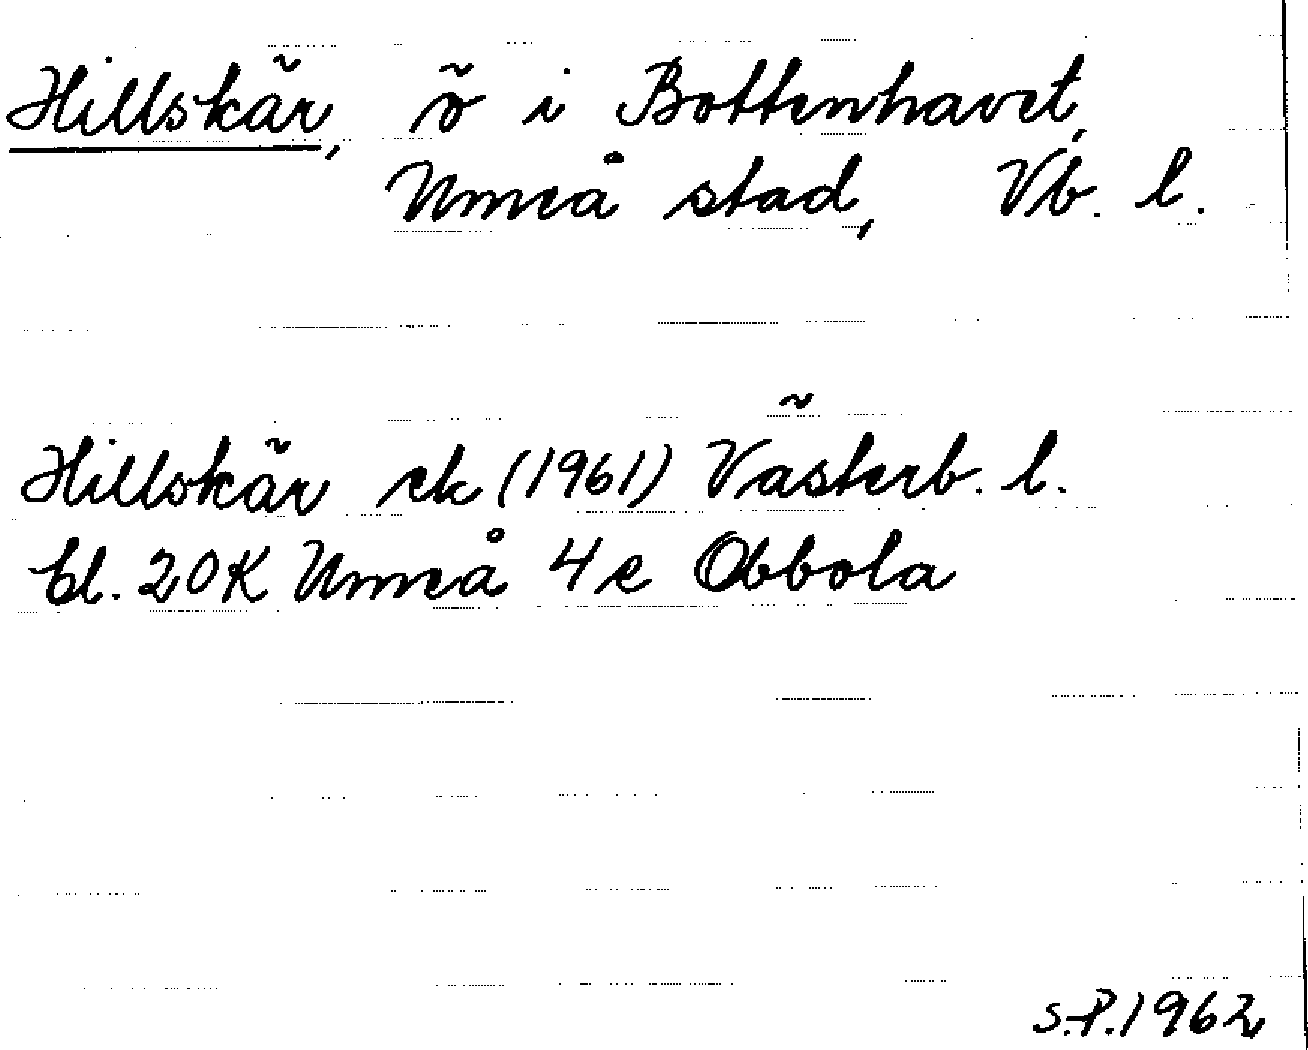 Hillskär, ö i Bottenhavet,
Umeå stad, Vb. l.
Hillskär ek (1961) Västerb. l.
bl. 20K Umeå 4e Obbola
S.P. 1962